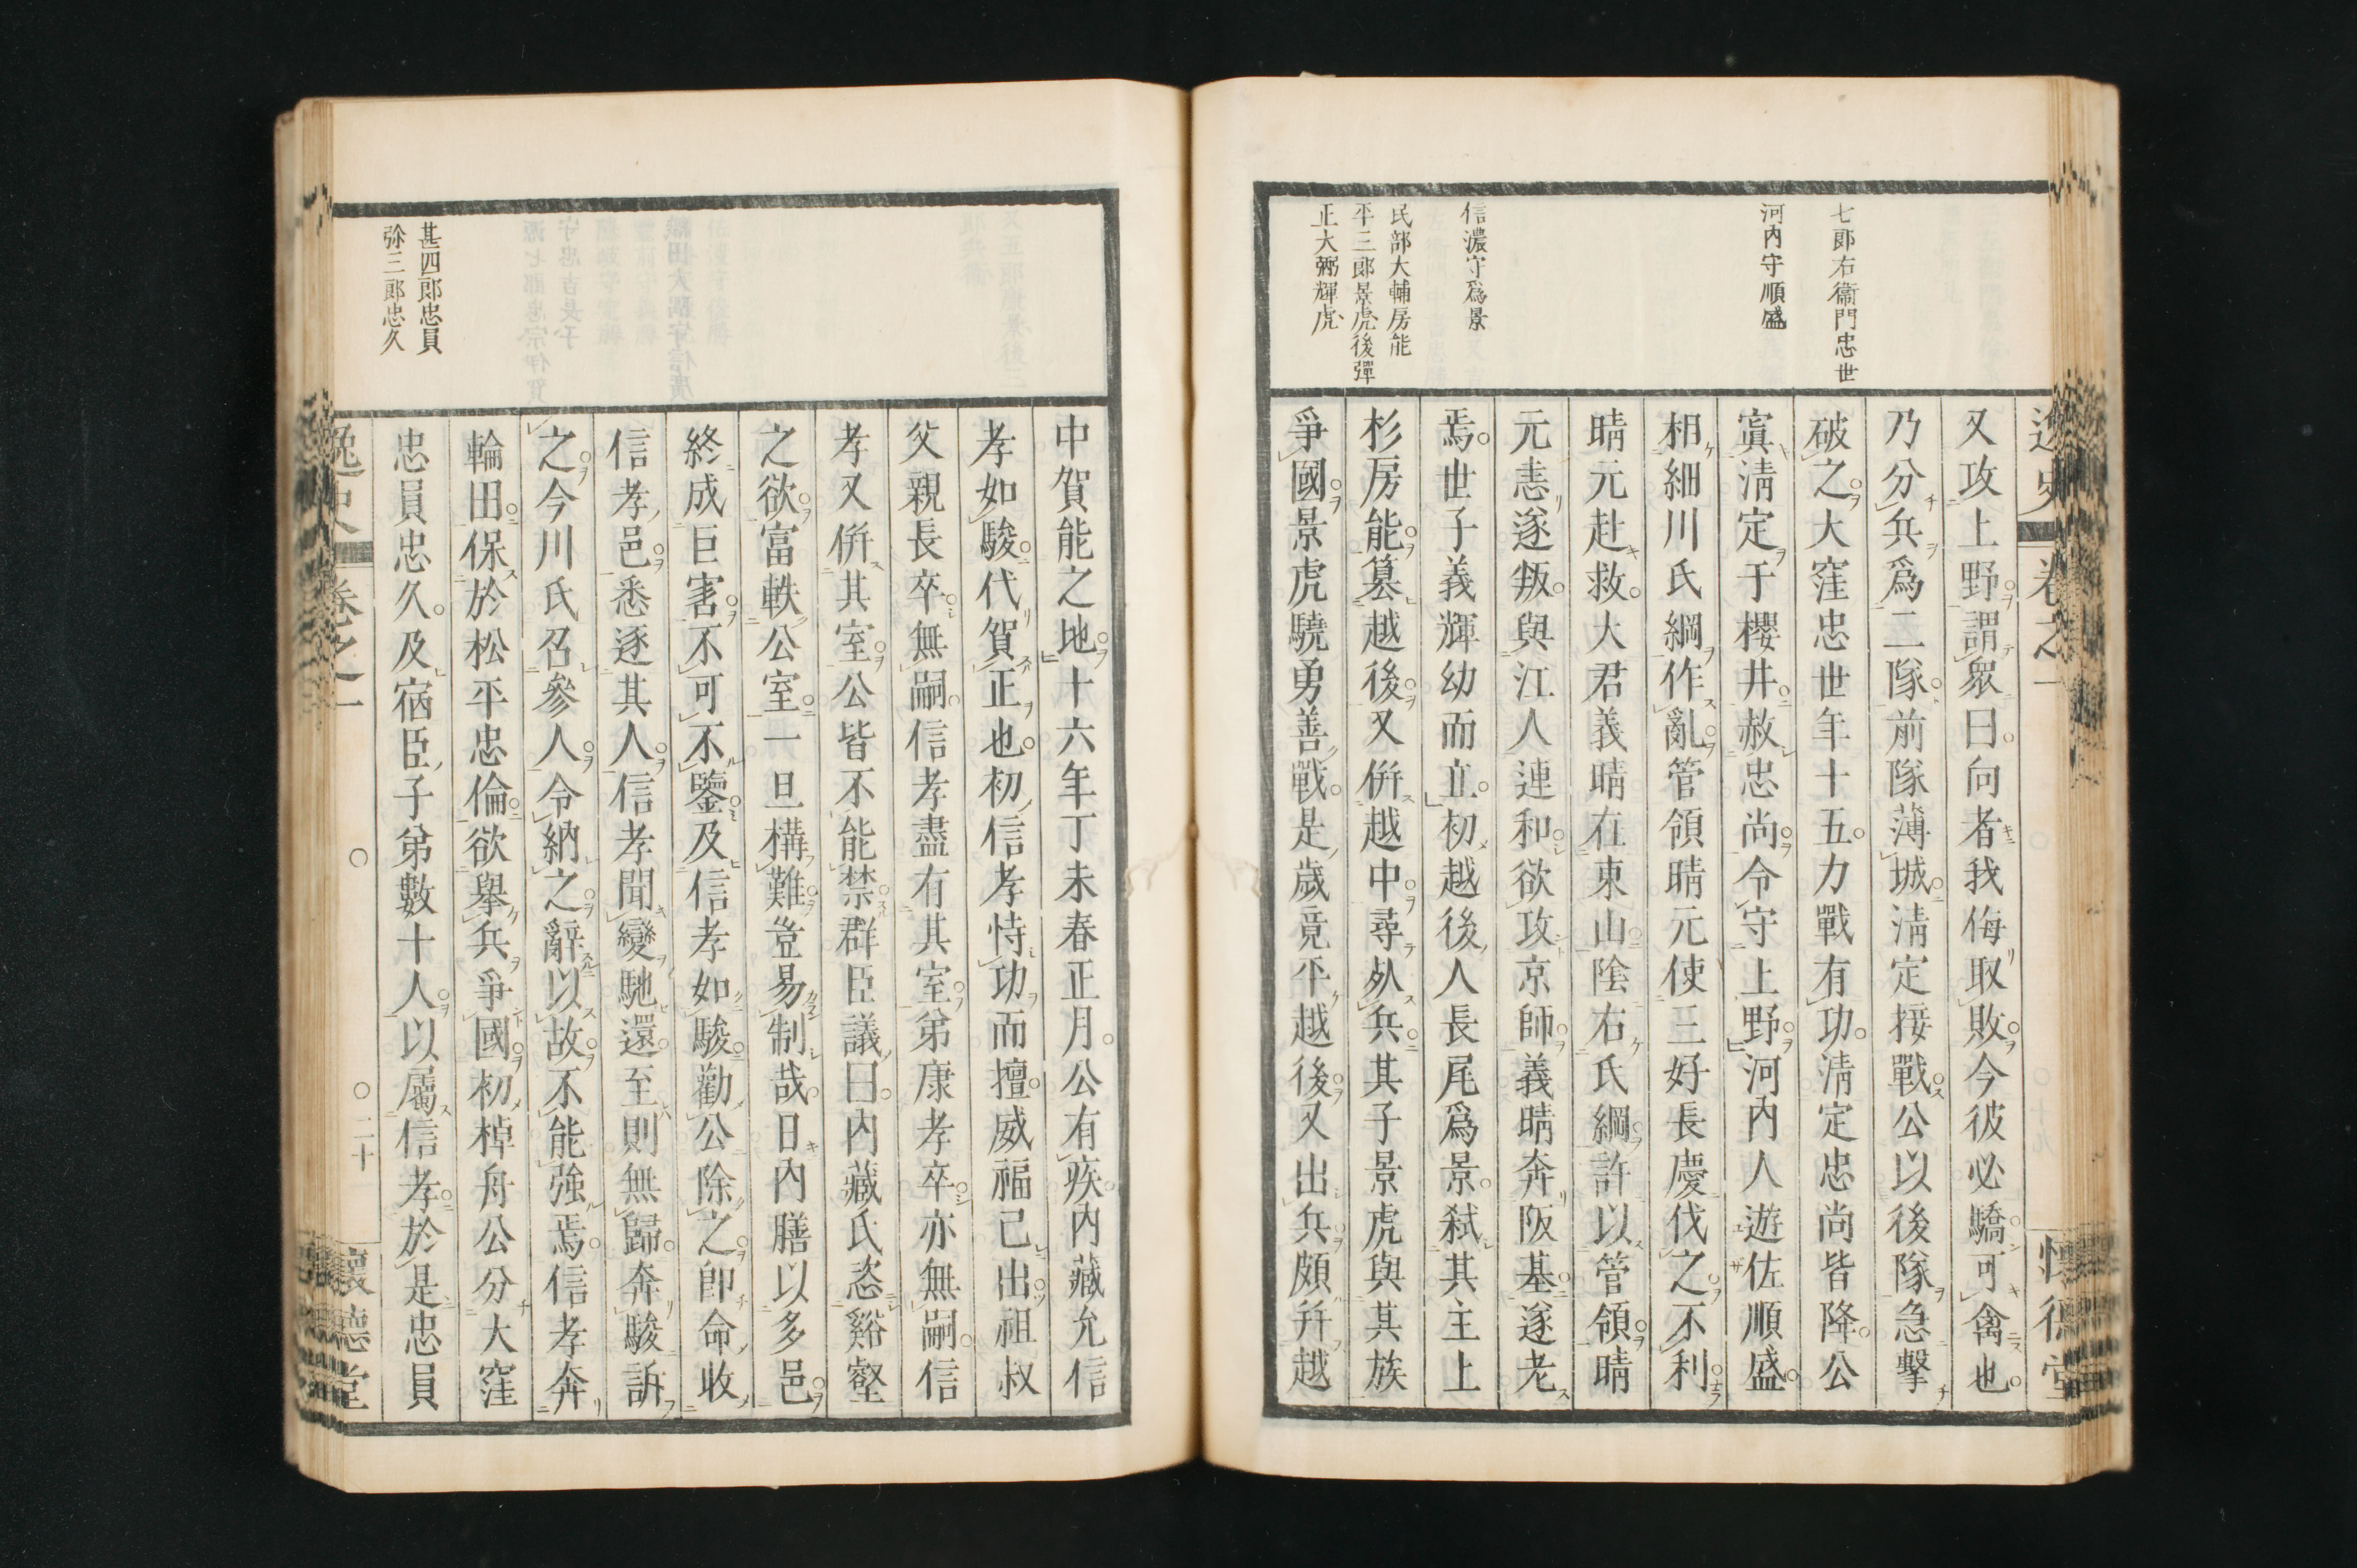 七郎右衞門忠世
河内守順盛
信濃守爲景
民部大輔房能
平三郎景虎後彈
正大弼輝虎
逸史 卷之一 懷德堂
又攻上野謂衆曰向者我侮取敗今彼必驕可禽也
乃分兵爲二隊前隊薄城淸定接戰公以後隊急擊
破之大窪忠世年十五力戰有功淸定忠尚皆降公
寘淸定于櫻井赦忠尚令守上野河内人遊佐順盛
相細川氏綱作亂管領晴元使三好長慶伐之不利
晴元赴救大君義晴在東山陰右氏綱許以管領晴
元恚遂叛與江人連和欲攻京師義晴奔阪基遂老
焉世子義輝幼而立初越後人長尾爲景弑其主上
杉房能簒越後又併越中尋死兵其子景虎與其族
爭國景虎驍勇善戰是歲竟平越後又出兵頗幷越
中賀能之地十六年丁未春正月公有疾内藏允信
孝如駿代賀正也初信孝恃功而擅威福己出祖叔
父親長卒無嗣信孝盡有其室弟康孝卒亦無嗣信
孝又併其室公皆不能禁群臣議曰内藏氏恣谿壑
之欲富軼公室一旦構難豈易制哉日内膳以多邑
終成巨害不可不鑒及信孝如駿勸公除之卽命收
信孝邑悉逐其人信孝聞變馳還至則無歸奔駿訴
之今川氏召參人令納之辭以故不能强焉信孝奔
輪田保於松平忠倫欲擧兵爭國初棹舟公分大窪
忠員忠久及宿臣子弟數十人以屬信孝於是忠員
甚四郎忠員
弥三郎忠久
逸史 卷之一 〇 〇二十 懷德堂